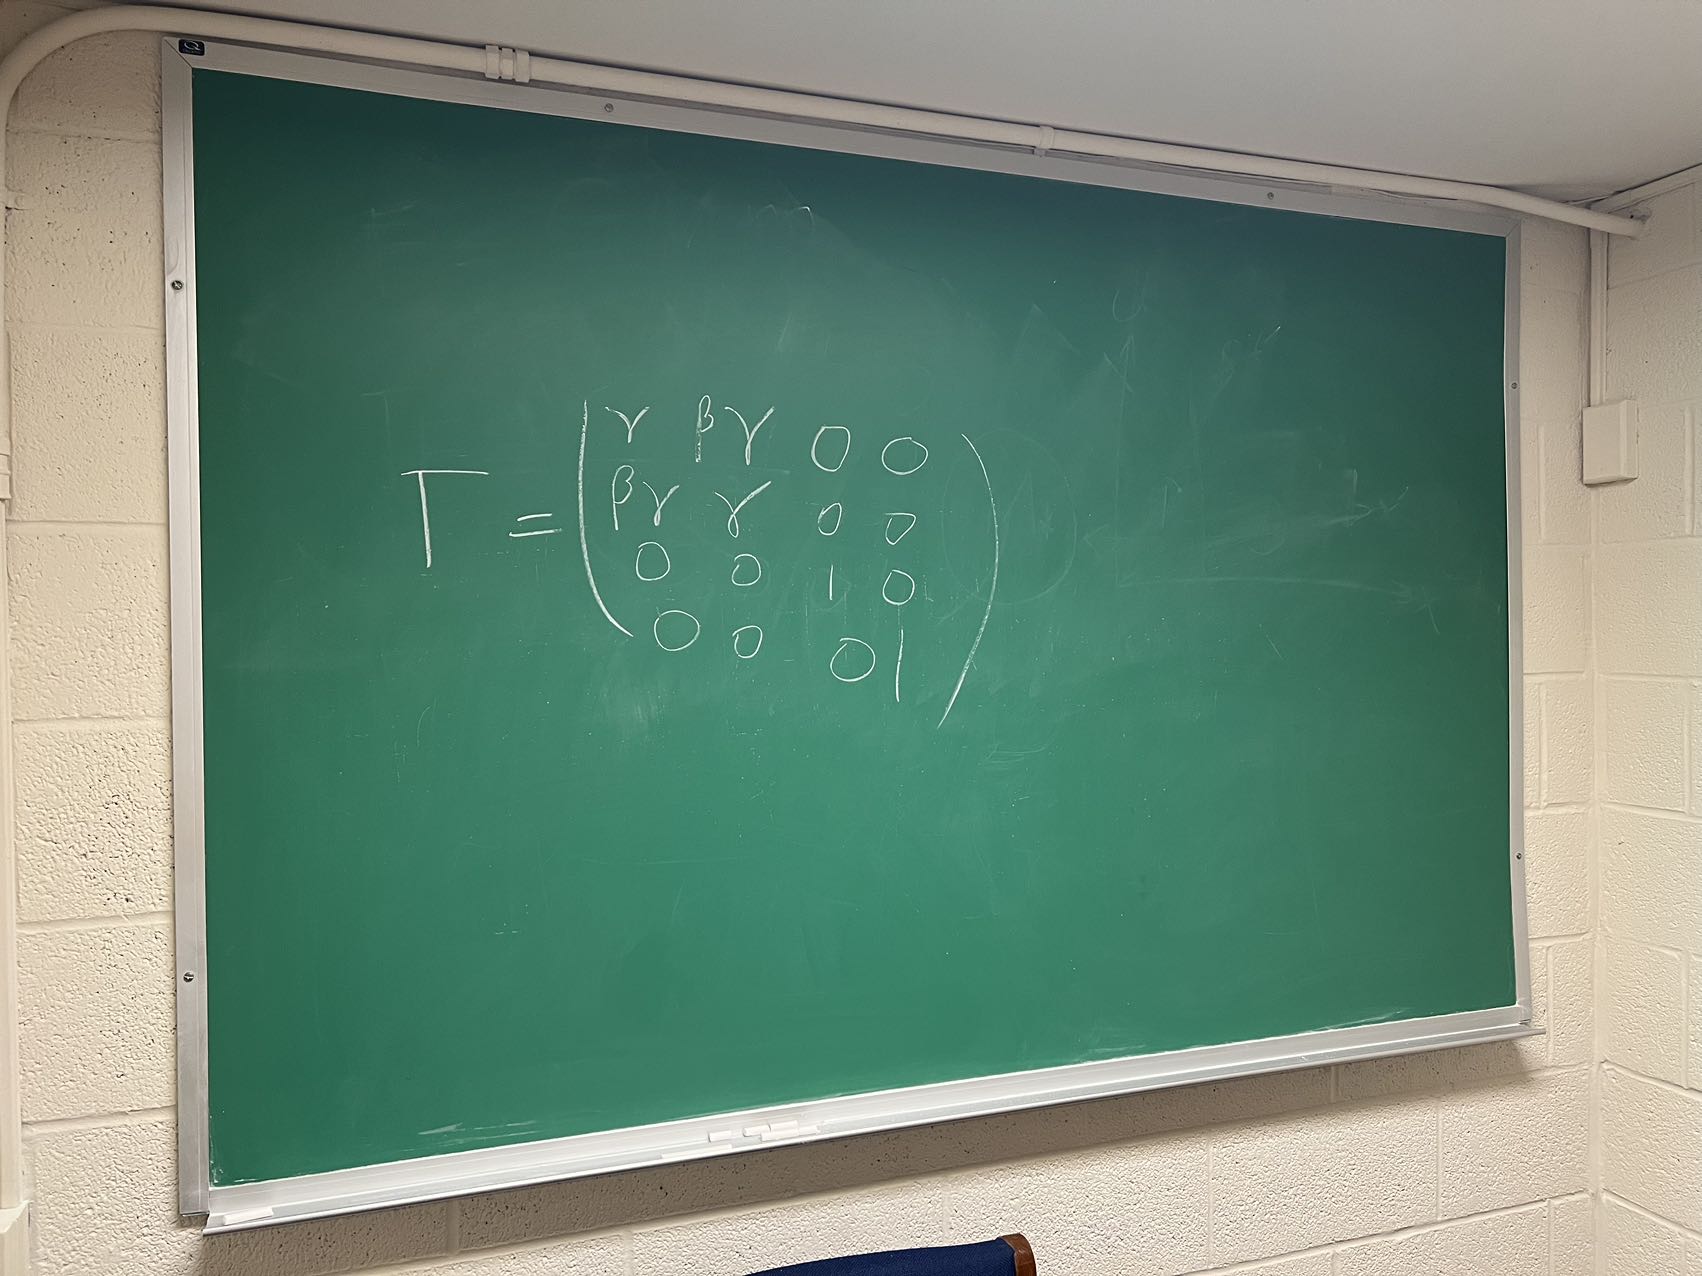 T = ( γ βγ 0 0
βγ γ 0 0
0 0 1 0
0 0 0 1 )